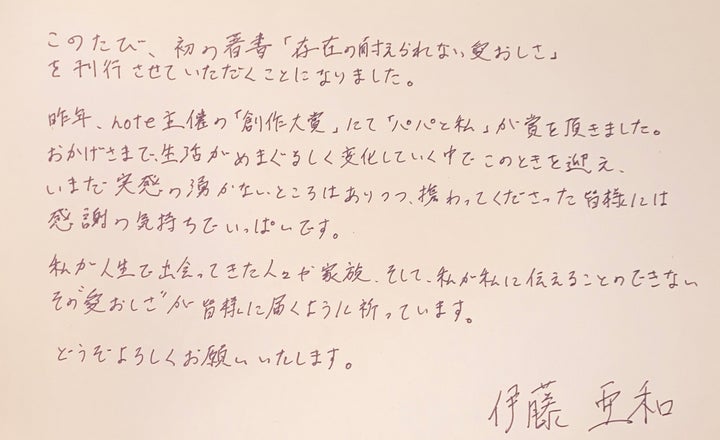 このたび、初の著書「存在の耐えられない愛おしさ」
を刊行させていただくことになりました。
昨年、note主催の「創作大賞」にて「パパと私」が賞を頂きました。
おかげさまで、生活がめまぐるしく変化していく中でこのときを迎え、
いまだ実感の湧かないところはありつつ、携わってくださった皆様には
感謝の気持ちでいっぱいです。
私が人生で出会ってきた人々や家族、そして、私が私に伝えることのできない
その"愛おしさ"が皆様に届くように祈っています。
どうぞよろしくお願いいたします。
伊藤 亜和